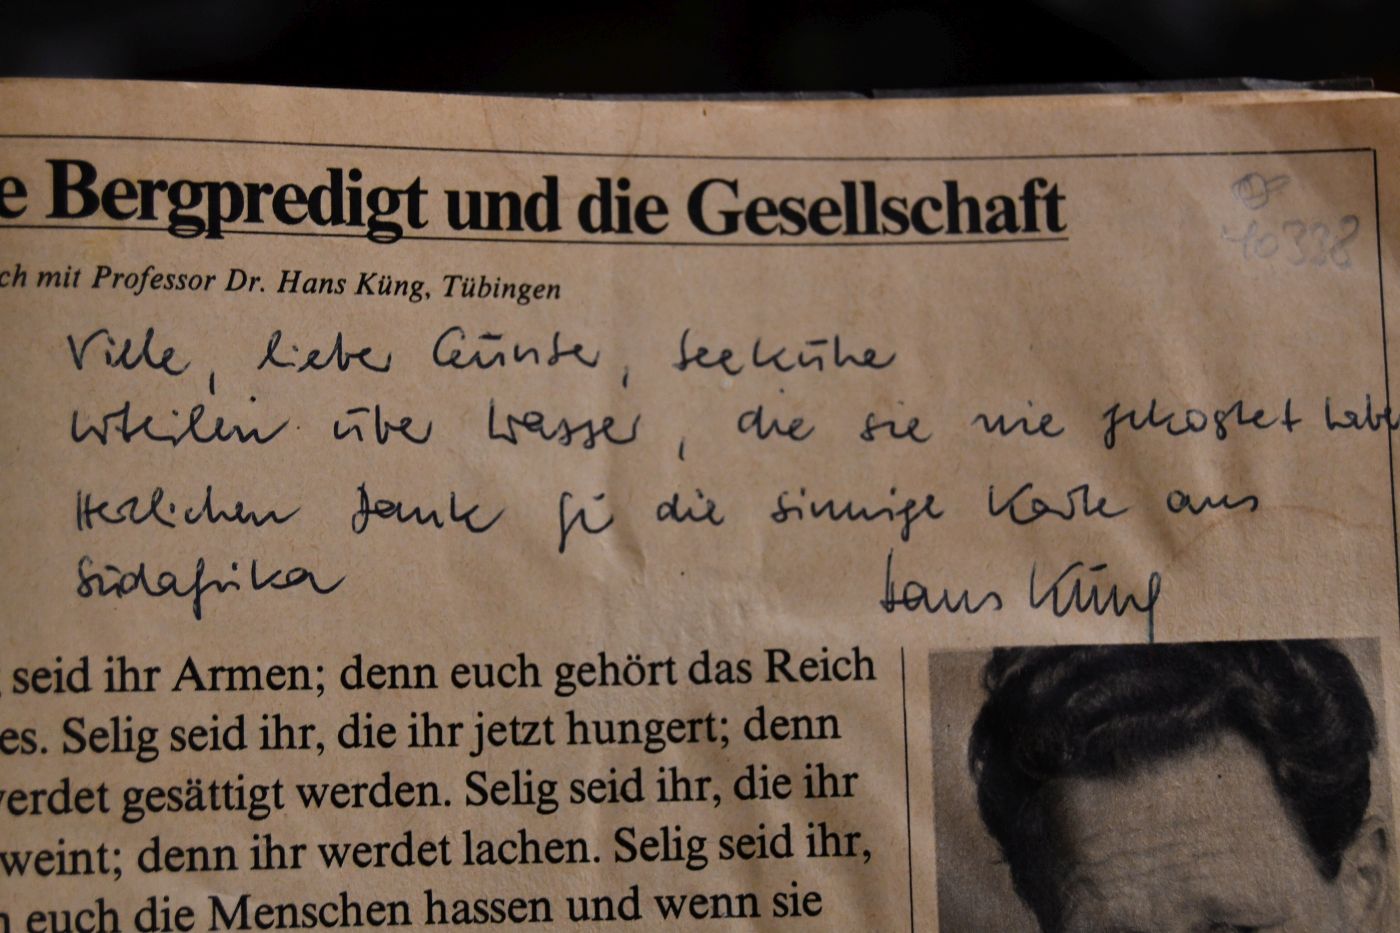 e Bergpredigt und die Gesellschaft
10338
ch mit Professor Dr. Hans Küng, Tübingen
Viele, lieber Günter, Seekühe
urteilen über Wasser, die sie nie gekostet habe
Herzlichen Dank für die sinnige Karte aus
Südafrika
Hans Küng
seid ihr Armen; denn euch gehört das Reich
es. Selig seid ihr, die ihr jetzt hungert; denn
werdet gesättigt werden. Selig seid ihr, die ihr
weint; denn ihr werdet lachen. Selig seid ihr,
n euch die Menschen hassen und wenn sie